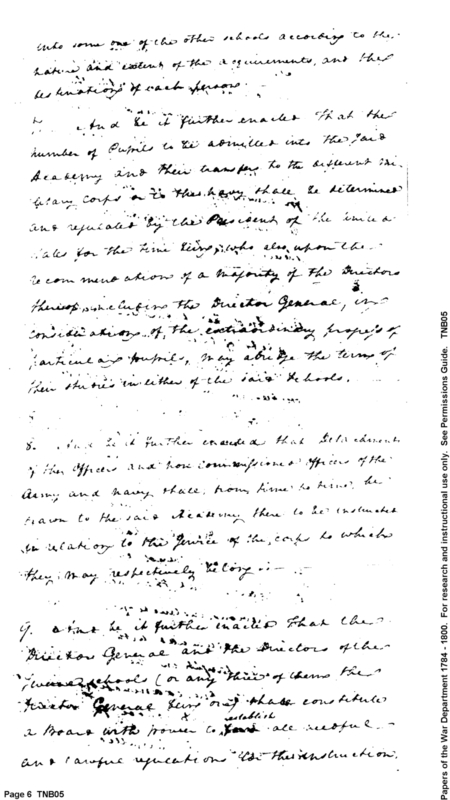 into some one of the other schools according to the
nature and extent of the acquirements, and the
destinations of each person
And be it further enacted That the
number of Pupils to be admitted into the said
Academy and their transfer to the different mi-
litary corps or to the navy shall be determined
and regulated by the President of the united
states for the time being, who also, upon the
recommendation of a majority of the Directors
thereof, including the Director General, in
consideration of the extraordinary progress of
particular pupils, may abridge the terms of
their studies in either of the said Schools.
8. And be it further enacted that Detachments
of the Officers and non commissioned officers of the
Army and navy shall, from time to time, be
drawn to the said Academy there to be instructed
in relation to the service of the corps to which
they may respectively belong
9. And be it further enacted That the
Director General and the Directors of the
schools (or any three of them the
Director General being one) shall constitute
a Board with power to establish all needful
and lawful regulations for the instruction,
Page 6 TNB05
Papers of the War Department 1784 - 1800. For research and instructional use only. See Permissions Guide. TNB05